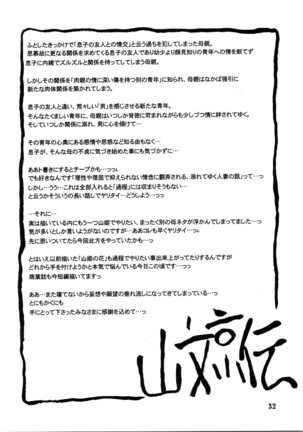 ふとしたきっかけで「息子の友人との情交」と云う過ちを犯してしまった母親。
思慕故に更なる関係を求めてくる息子の友人であり幼少より顔見知りの青年への情を断てず
息子に内緒でズルズルと関係を持ってしまう母親。
しかしその関係を「肉親の情に深い傷を持つ別の青年」に知られ、母親はなかば強引に
新たな肉体関係を築かれてしまう。
息子の友人と違い、荒々しい「男」を感じさせる新たな青年。
そんなたくましい青年に、母親はいつしか背徳に苛まれながらも少しづつ情に絆されてゆく。
そしていつしか関係に溺れ、男に心を傾けて…
その青年の心奥にある感情や思惑など知る由もなく…
息子が、そんな母の不貞に気づき始めた事にも気づかずに…
ああト書きにするとチープかも…っ
でも好きなんです「理性や理屈で抑えられない情念に翻弄される、溺れてゆく人妻の話」って
しかし…うう…これは全部入れると「過程」には収まりそうもない…
と云うかそういうのの長い話しでヤリタイ…どうしよう…っっ
…それに…
実は描いている内にもう一つ山姫でやりたい、まったく別の母ネタが浮かんでしまってました…っ
気が多いとしか言いようがないのですが…ああコレも早くヤリタイ…っ
先に思いついてたから今回此方をやっていたかも…っ
とはいえ以前描いた「山姫の花」も過程でやりたい事出来上がってたりするんですが
どれから手を付けようかと本気で悩んでいる今日この頃です…っ
商業誌も今短編描いてますっ
ああ…また寝てないから妄想や願望の垂れ流しになってきてしまっている…っ
とにもかくにも
手にとって下さったみなさまに感謝を込めて…っ
32